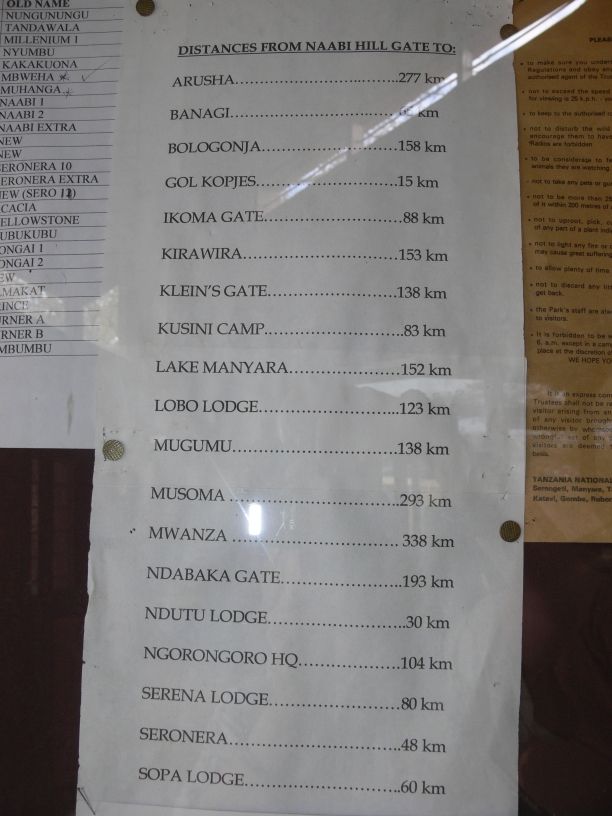 OLD NAME
NUNGUNUNGU
TANDAWALA
MILLENIUM 1
NYUMBU
KAKAKUONA
MBWEHA
MUHANGA
NAABI 1
NAABI 2
NAABI EXTRA
NEW
NEW
SERONERA 10
SERONERA EXTRA
NEW (SERO 12)
ACACIA
YELLOWSTONE
UBUKUBU
ONGAI 1
ONGAI 2
EW
AMAKAT
RINCE
URNER A
URNER B
MBUMBU
DISTANCES FROM NAABI HILL GATE TO:
ARUSHA.................................277 km
BANAGI.................................km
BOLOGONJA.................................158 km
GOL KOPJES.................................15 km
IKOMA GATE.................................88 km
KIRAWIRA.................................153 km
KLEIN'S GATE.................................138 km
KUSINI CAMP.................................83 km
LAKE MANYARA.................................152 km
LOBO LODGE.................................123 km
MUGUMU.................................138 km
MUSOMA.................................293 km
MWANZA.................................338 km
NDABAKA GATE.................................193 km
NDUTU LODGE.................................30 km
NGORONGORO HQ.................................104 km
SERENA LODGE.................................80 km
SERONERA.................................48 km
SOPA LODGE.................................60 km
PLEAS
to make sure you under
Regulations and obey any
authorised agent of the Trus
not to exceed the speed
for viewing is 25 k.p.h.
to keep to the authorised
not to disturb the wild
encourage them to have
Radios are forbidden
to be considerate to
animals they are watching
not to take any pets or
not to be more than 25
of it within 200 metres of
not to uproot, pick,
of any part of a plant
not to light any fire or
may cause great suffering
to allow plenty of time
not to discard any
get back.
the Park's staff are
to visitors.
it is forbidden to be
6. a.m. except in a camp
place at the discretion of
WE HOPE YO
It is an express con
Trustees shall not be
visitor arising from
of any visitor
otherwise by
act of any
visitors are deemed
basis.
TANZANIA NATIONAL
Serengeti, Manyara,
Katavi, Gombe, Rubon